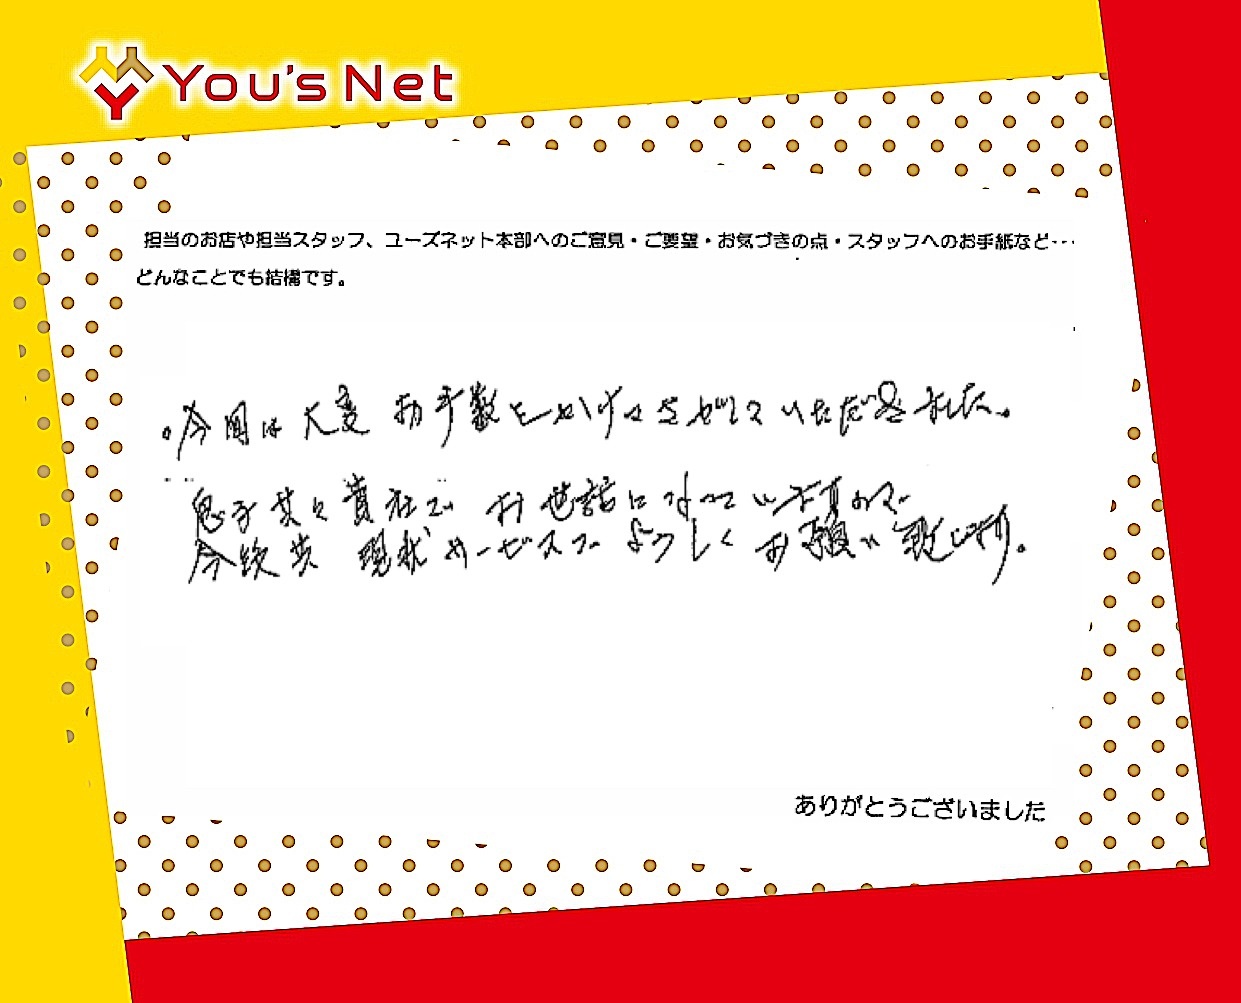 You's Net
担当のお店や担当スタッフ、ユーズネット本部へのご意見・ご要望・お気づきの点・スタッフへのお手紙など…
どんなことでも結構です。
。今回は大変お手数をかけさせていただきました。
息子共々貴社でお世話になっていますので
今後共 現状サービスでよろしくお願い致します。
ありがとうございました